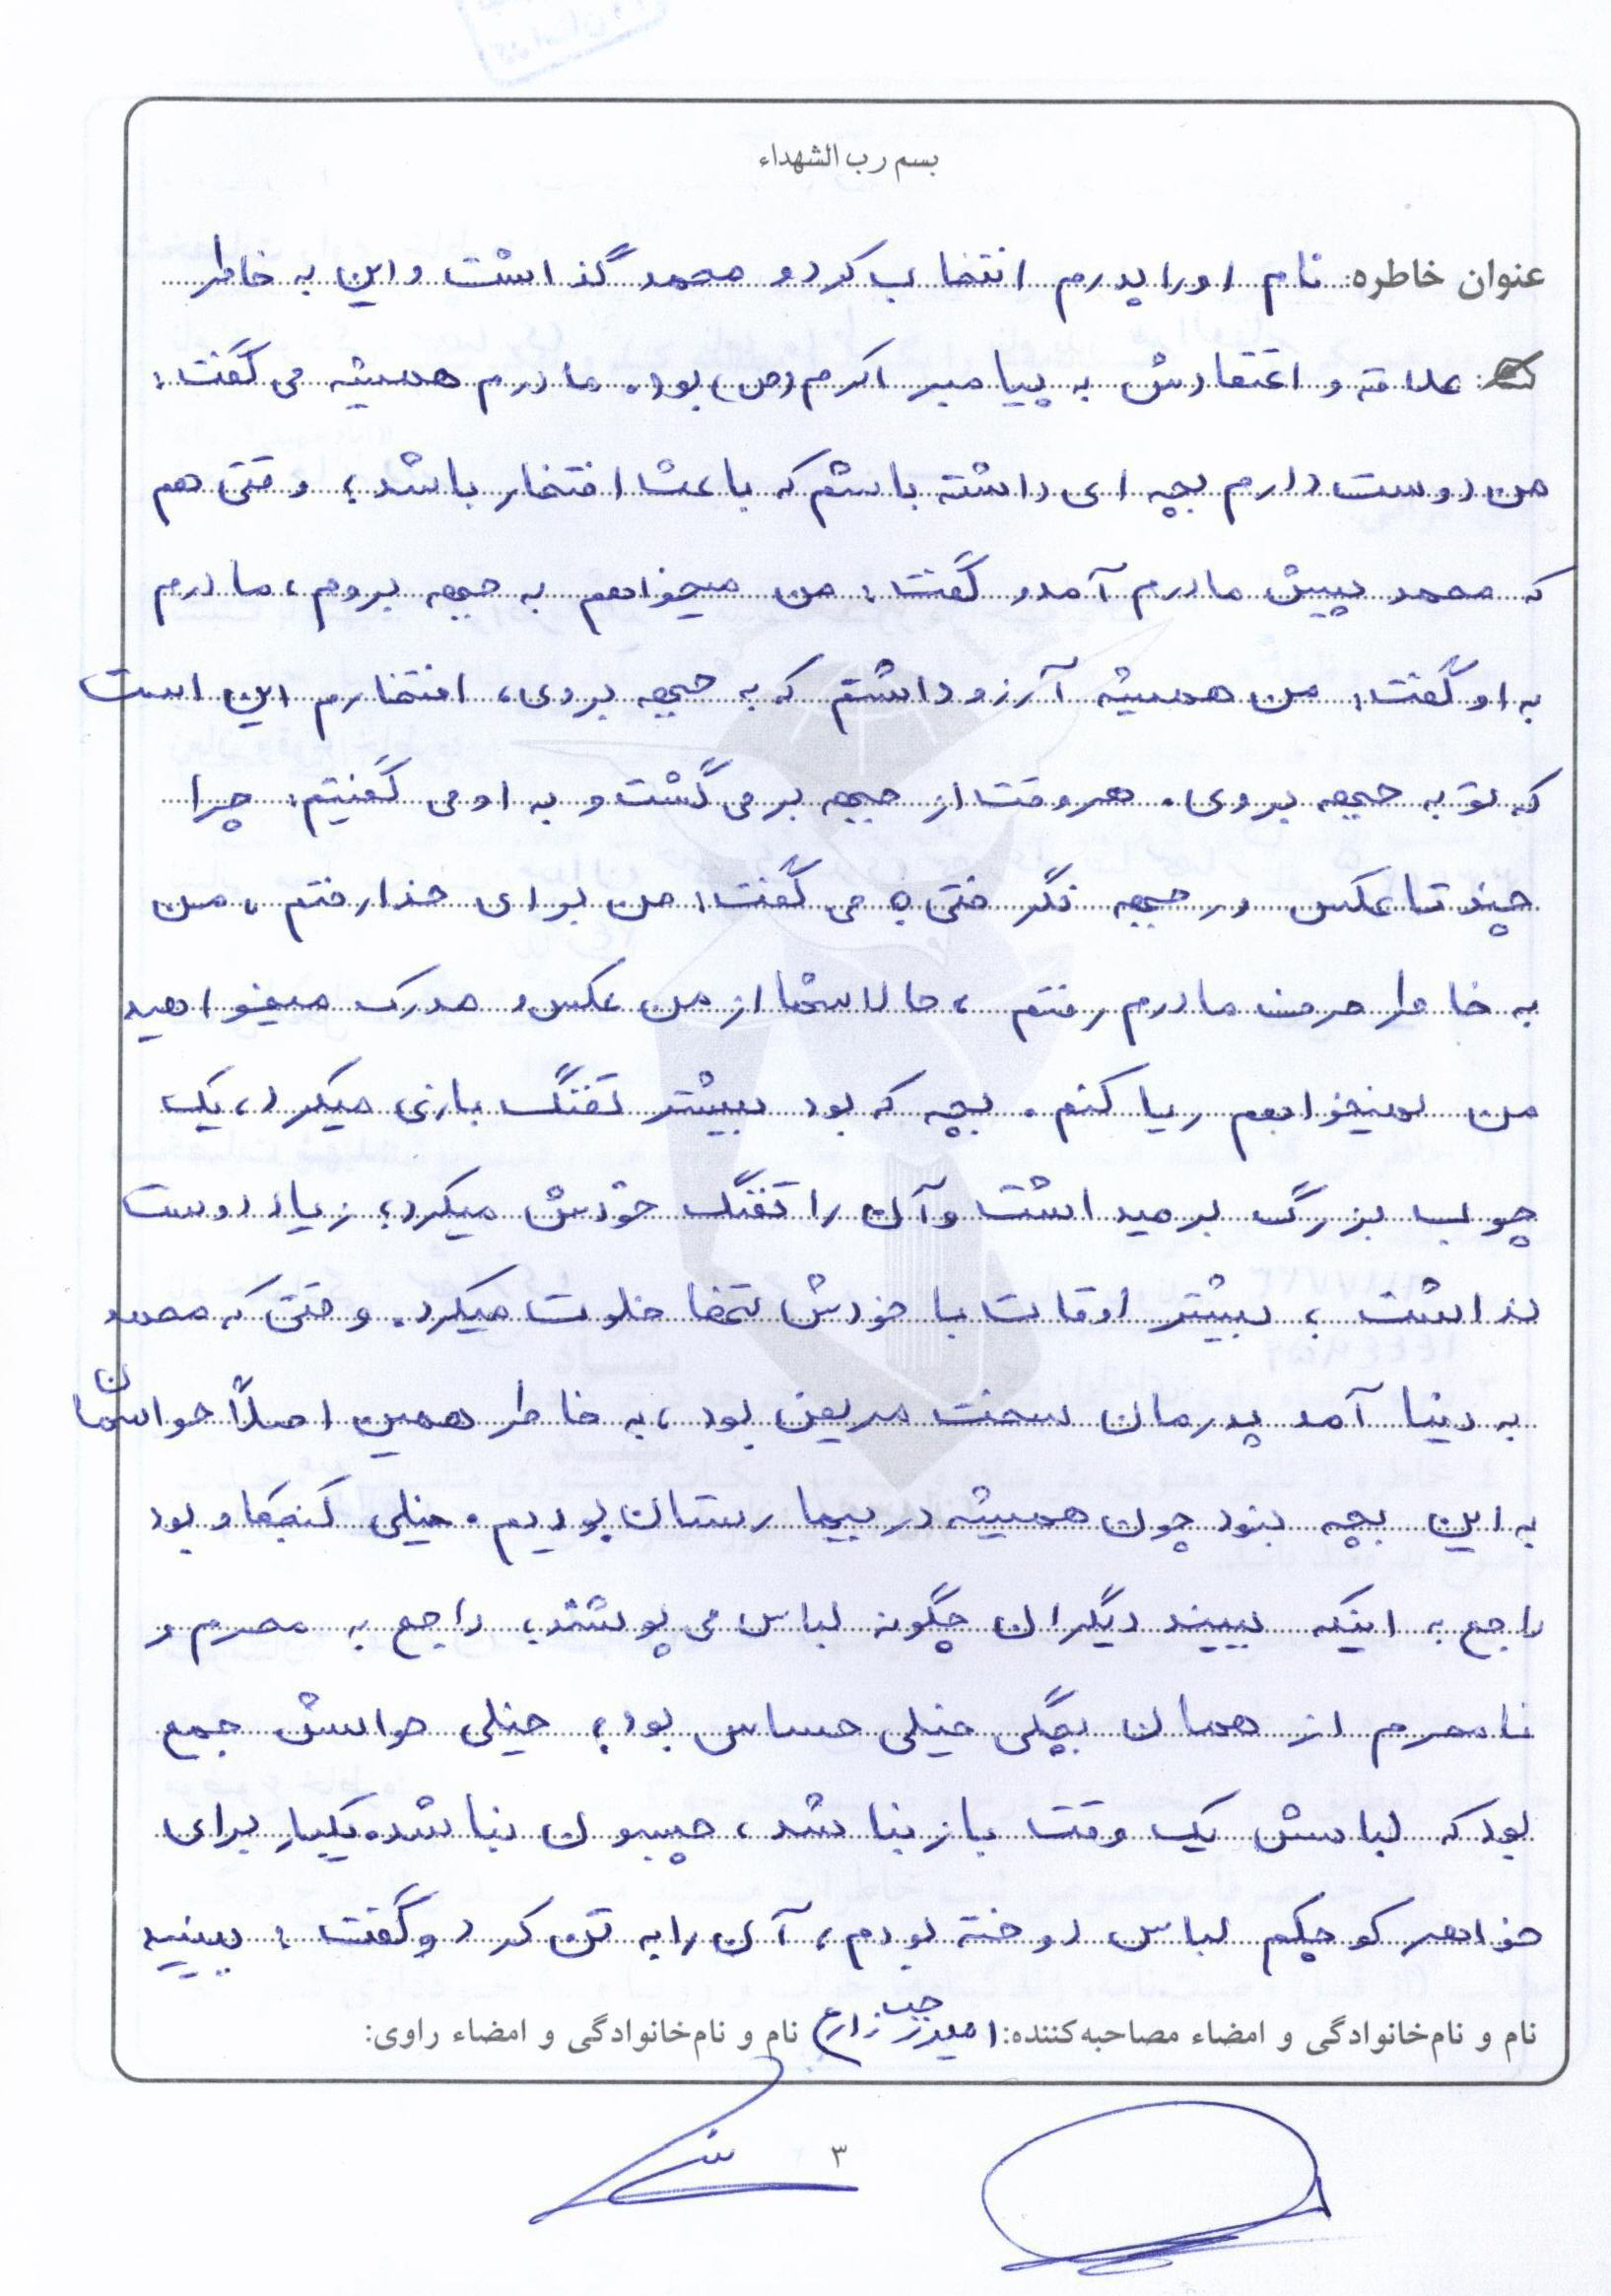 بسم رب الشهداء
عنوان خاطره: نام او را پدرم انتخاب کرد و محمد گذاشت و این به خاطر
علاقه و اعتقادش به پیامبر اکرم (ص) بود. مادرم همیشه می گفت:
من دوست دارم بچه ای داشته باشم که باعث افتخار باشد؛ وقتی هم
که محمد پیش مادرم آمد و گفت: من میخواهم به جبهه بروم، مادرم
به او گفت: من همیشه آرزو داشتم که به جبهه بروی، افتخارم این است
که تو به جبهه بروی. هر وقت از جبهه برمی گشت و به او می گفتیم: چرا
چند تا عکس در جبهه نگرفتی؟ می گفت: من برای خدا رفتم، من
به خاطر حرف مادرم رفتم، حالا شما از من عکس و مدرک میخواهید
من نمیخواهم ریا کنم. بچه که بود بیشتر تفنگ بازی میکرد، یک
چوب بزرگ برمیداشت و آن را تفنگ خودش میکرد؛ زیاد دوست
نداشت؛ بیشتر اوقات با خودش تنها خلوت میکرد. وقتی که محمد
به دنیا آمد پدرمان سخت مریض بود، به خاطر همین اصلاً حواسمان
به این بچه نبود چون همیشه در بیمارستان بودیم. خیلی کنجکاو بود
راجع به اینکه ببیند دیگران چگونه لباس می پوشند، راجع به محرم و
نامحرم از همان بچگی خیلی حساس بود؛ خیلی حواسش جمع
بود که لباسش یک وقت باز نباشد، چسبون نباشد. یکبار برای
خواهر کوچکم لباس دوخته بودم، آن را به تن کرد و گفت: ببینید
نام و نام‌خانوادگی و امضاء مصاحبه‌کننده: نام و نام‌خانوادگی و امضاء راوی:
۳